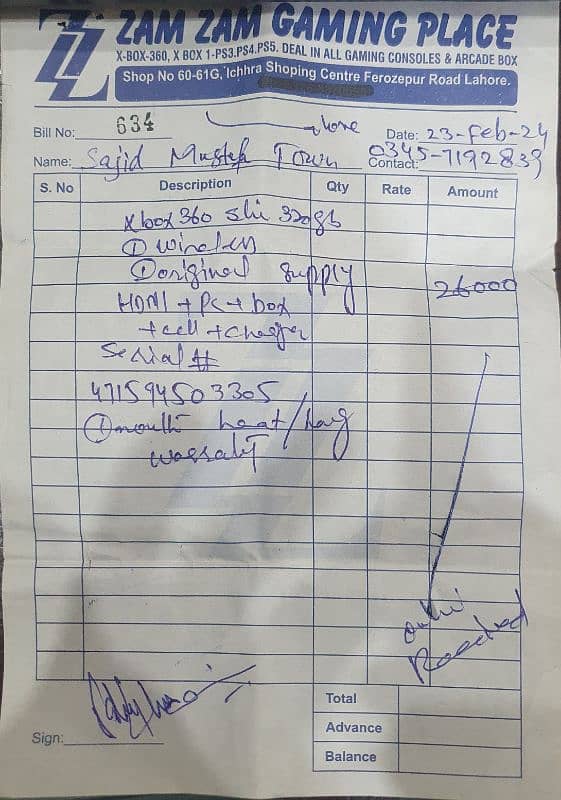 ZAM ZAM GAMING PLACE
X-BOX-360, X BOX 1-PS3.PS4.PS5. DEAL IN ALL GAMING CONSOLES & ARCADE BOX
Shop No 60-61G, Ichhra Shoping Centre Ferozepur Road Lahore.
Bill No: 634 Date: 23-Feb-24
Name: Sajid Town Contact: 0345-7192839
S. No Description Qty Rate Amount
Xbox360 320gb
① wireless
① original supply 26000
HDMI + PC + box
+ cell + charger
Serial #
471594503305
① month heat/hang
warranty
Received
Total
Advance
Sign: Balance